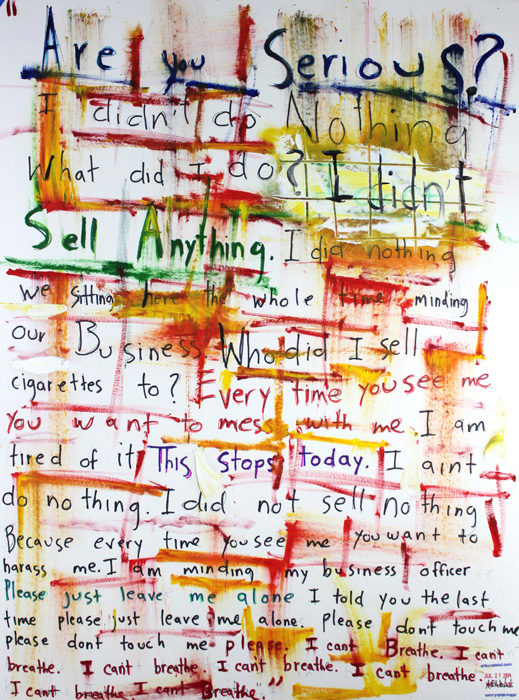 "Are you Serious?
I didn't do Nothing
What did I do? I didn't
Sell Anything. I did nothing
we sitting here the whole time minding
our Business. Who did I sell
cigarettes to? Every time you see me
You want to mess with me. I am
tired of it. This stops today. I aint
do nothing. I did not sell nothing
Because every time you see me you want to
harass me. I am minding my business officer
Please just leave me alone I told you the last
time please just leave me alone. Please don't touch me
please dont touch me please. I cant Breathe. I cant
breathe. I cant breathe. I cant breathe. I cant breathe.
I cant breathe. I cant Breathe."
JUL 21 2014